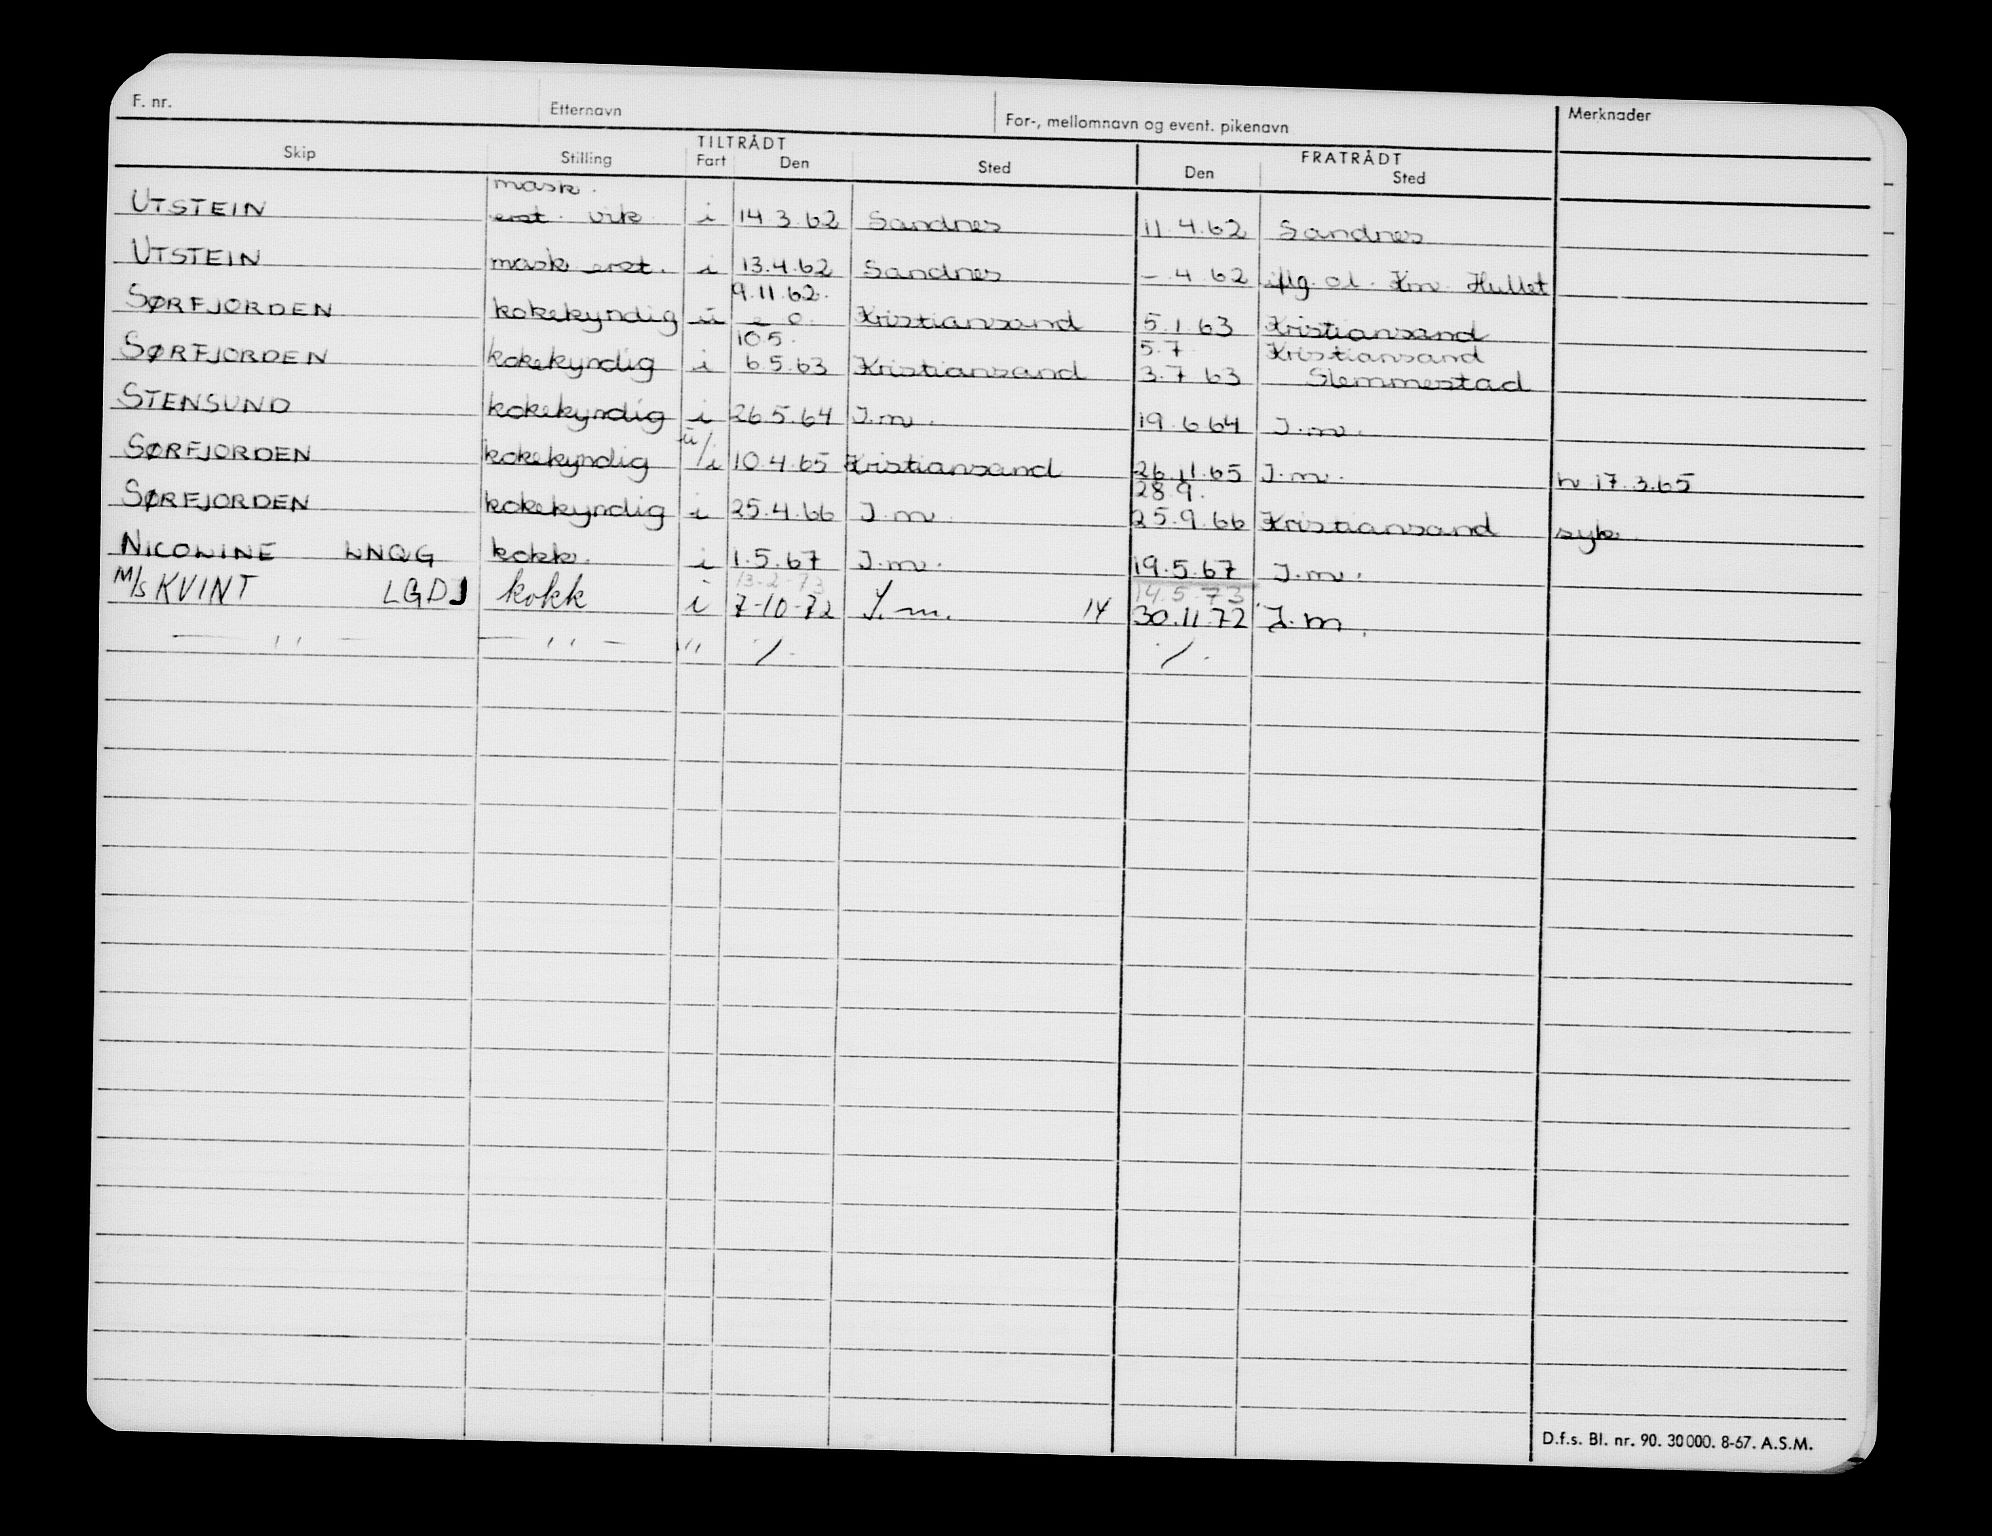 F. nr. Etternavn For-, mellomnavn og event. pikenavn Merknader
TILTRÅDT FRATRÅDT
Skip Stilling Fart Den Sted Den Sted
mask.
UTSTEIN erst. vik i 14.3.62 Sandnes 11.4.62 Sandnes
UTSTEIN mask erst. i 13.4.62 Sandnes – .4.62 iflg. ol. Km. Hullet
9.11.62.
SØRFJORDEN kokekyndig u Kristiansand 5.1.63 Kristiansand
10.5. 5.7. Kristiansand
SØRFJORDEN kokekyndig i 6.5.63 Kristiansand 3.7.63 Slemmestad
STENSUND kokekyndig i 26.5.64 J.m. 19.6.64 J.m.
SØRFJORDEN kokekyndig u/i 10.4.65 Kristiansand 26.11.65 J.m. h 17.3.65
28.9.
SØRFJORDEN kokekyndig i 25.4.66 J.m. 25.9.66 Kristiansand syk
NICOLINE LNQG kokk. i 1.5.67 J.m. 19.5.67 J.m.
13-2-73 14.5.73
M/S KVINT LGDJ kokk i 7-10-72 J.m. 14 30.11.72 J.m.
— '' — — '' — ''' /. /.
D.f.s. Bl. nr. 90. 30000. 8-67. A.S.M.